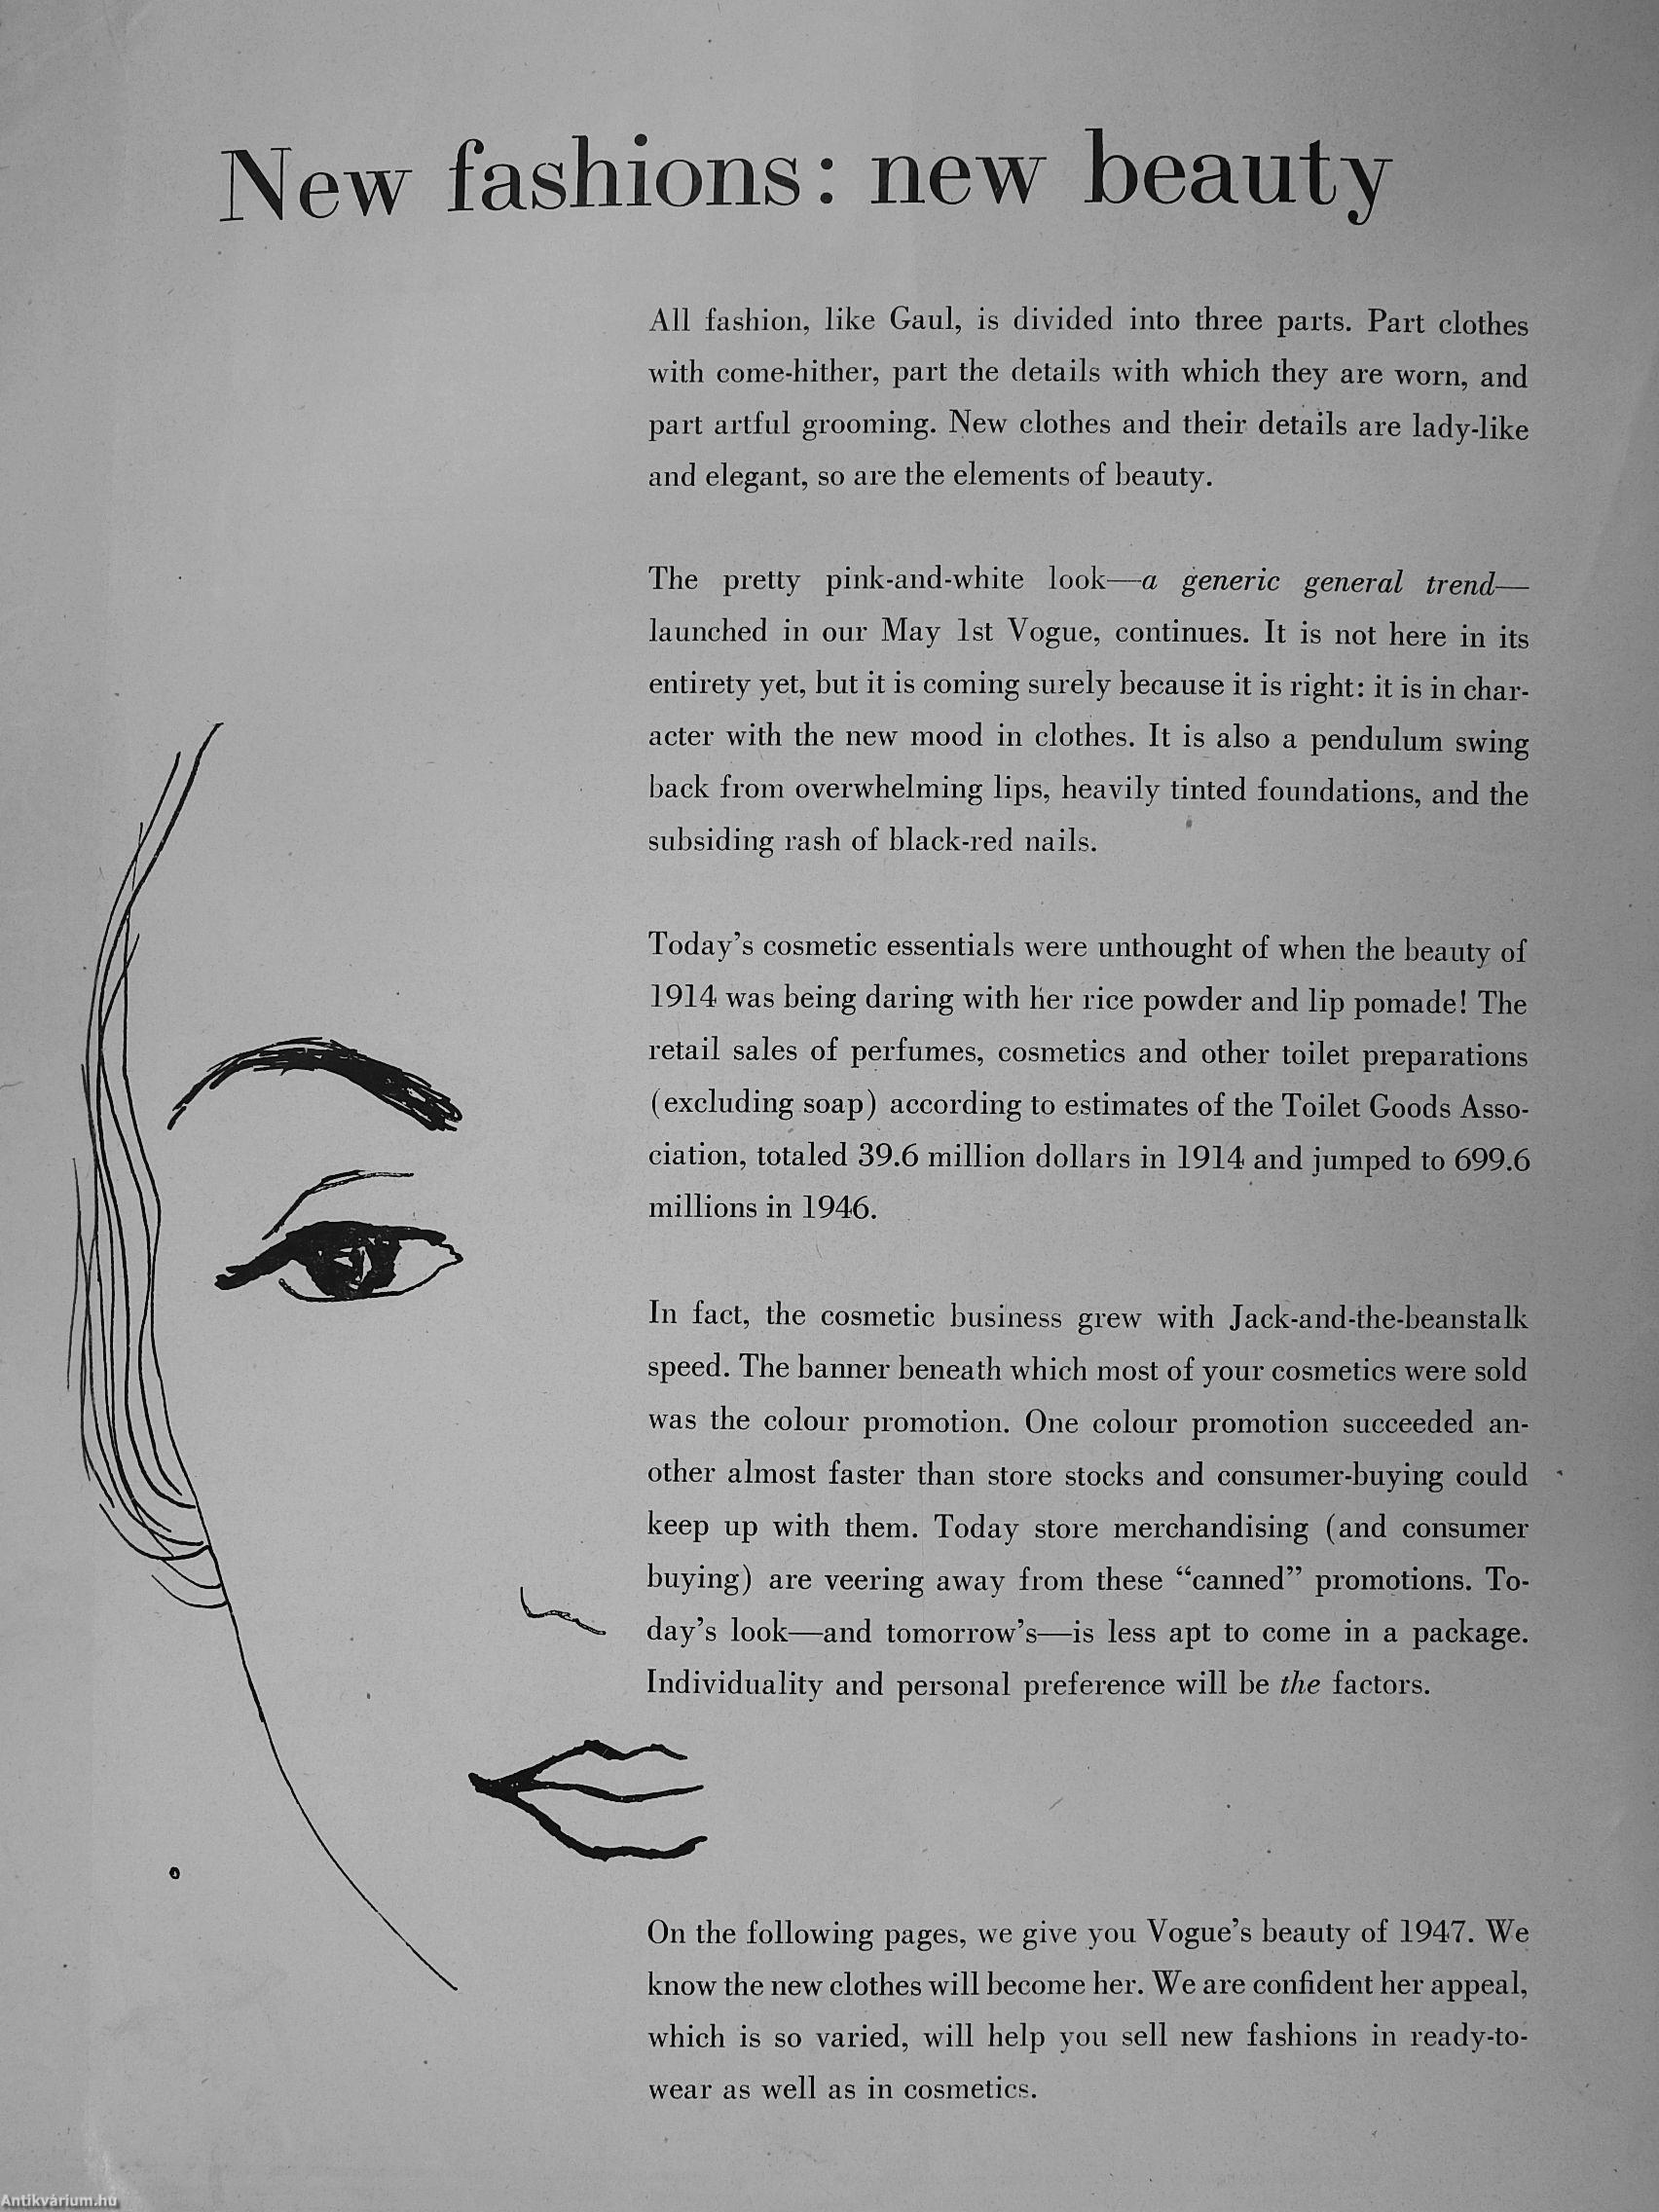 New fashions: new beauty
All fashion, like Gaul, is divided into three parts. Part clothes
with come-hither, part the details with which they are worn, and
part artful grooming. New clothes and their details are lady-like
and elegant, so are the elements of beauty.
The pretty pink-and-white look—a generic general trend—
launched in our May 1st Vogue, continues. It is not here in its
entirety yet, but it is coming surely because it is right: it is in char-
acter with the new mood in clothes. It is also a pendulum swing
back from overwhelming lips, heavily tinted foundations, and the
subsiding rash of black-red nails.
Today's cosmetic essentials were unthought of when the beauty of
1914 was being daring with her rice powder and lip pomade! The
retail sales of perfumes, cosmetics and other toilet preparations
(excluding soap) according to estimates of the Toilet Goods Asso-
ciation, totaled 39.6 million dollars in 1914 and jumped to 699.6
millions in 1946.
In fact, the cosmetic business grew with Jack-and-the-beanstalk
speed. The banner beneath which most of your cosmetics were sold
was the colour promotion. One colour promotion succeeded an-
other almost faster than store stocks and consumer-buying could
keep up with them. Today store merchandising (and consumer
buying) are veering away from these “canned” promotions. To-
day's look—and tomorrow's—is less apt to come in a package.
Individuality and personal preference will be the factors.
On the following pages, we give you Vogue's beauty of 1947. We
know the new clothes will become her. We are confident her appeal,
which is so varied, will help you sell new fashions in ready-to-
wear as well as in cosmetics.
Antikvárium.hu